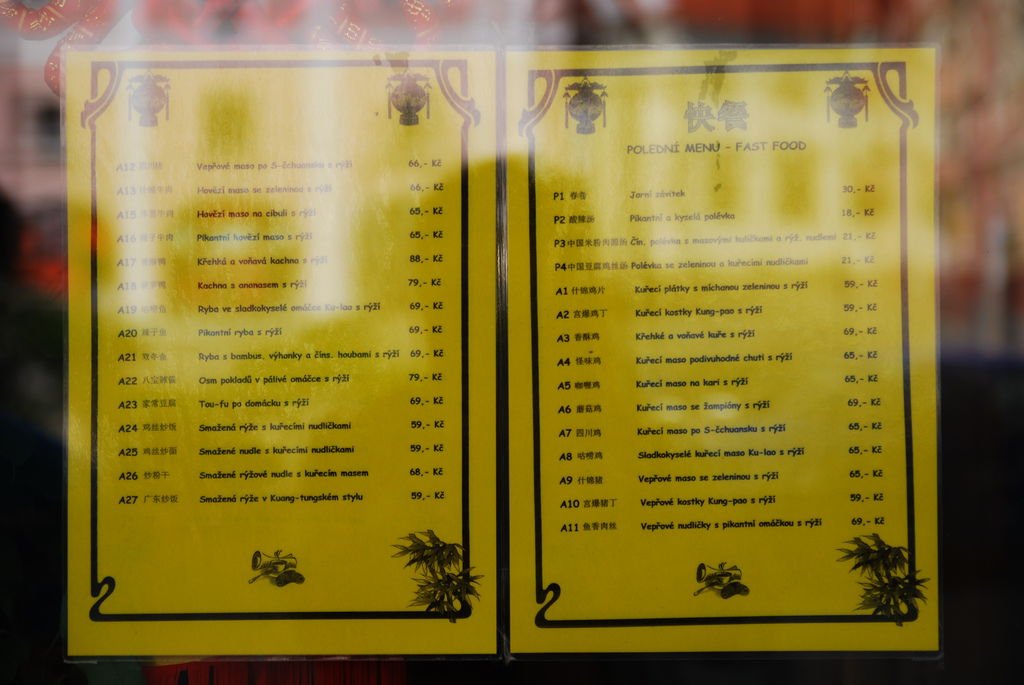 A12 四川猪 Vepřové maso po S-čchuansku s rýží 66,- Kč
A13 什锦牛肉 Hovězí maso se zeleninou s rýží 66,- Kč
A15 牛肉 Hovězí maso na cibuli s rýží 65,- Kč
A16 辣子牛肉 Pikantní hovězí maso s rýží 65,- Kč
A17 香酥鸭 Křehká a voňavá kachna s rýží 88,- Kč
A18 菠萝鸭 Kachna s ananasem s rýží 79,- Kč
A19 咕咾鱼 Ryba ve sladkokyselé omáčce Ku-lao s rýží 69,- Kč
A20 辣子鱼 Pikantní ryba s rýží 69,- Kč
A21 双冬鱼 Ryba s bambus. výhonky a číns. houbami s rýží 69,- Kč
A22 八宝辣酱 Osm pokladů v pálivé omáčce s rýží 79,- Kč
A23 家常豆腐 Tou-fu po domácku s rýží 69,- Kč
A24 鸡丝炒饭 Smažená rýže s kuřecími nudličkami 59,- Kč
A25 鸡丝炒面 Smažené nudle s kuřecími nudličkami 59,- Kč
A26 炒粉干 Smažené rýžové nudle s kuřecím masem 68,- Kč
A27 广东炒饭 Smažená rýže v Kuang-tungském stylu 59,- Kč
快餐
POLEDNÍ MENU - FAST FOOD
P1 春卷 Jarní závitek 30,- Kč
P2 酸辣汤 Pikantní a kyselá polévka 18,- Kč
P3 中国米粉肉圆汤 Čín. polévka s masovými kuličkami a rýž. nudlemi 21,- Kč
P4 中国豆腐鸡丝汤 Polévka se zeleninou a kuřecími nudličkami 21,- Kč
A1 什锦鸡片 Kuřecí plátky s míchanou zeleninou s rýží 59,- Kč
A2 宫爆鸡丁 Kuřecí kostky Kung-pao s rýží 59,- Kč
A3 香酥鸡 Křehké a voňavé kuře s rýží 69,- Kč
A4 怪味鸡 Kuřecí maso podivuhodné chuti s rýží 65,- Kč
A5 咖喱鸡 Kuřecí maso na kari s rýží 65,- Kč
A6 蘑菇鸡 Kuřecí maso se žampióny s rýží 69,- Kč
A7 四川鸡 Kuřecí maso po S-čchuansku s rýží 65,- Kč
A8 咕咾鸡 Sladkokyselé kuřecí maso Ku-lao s rýží 65,- Kč
A9 什锦猪 Vepřové maso se zeleninou s rýží 65,- Kč
A10 宫爆猪丁 Vepřové kostky Kung-pao s rýží 59,- Kč
A11 鱼香肉丝 Vepřové nudličky s pikantní omáčkou s rýží 69,- Kč